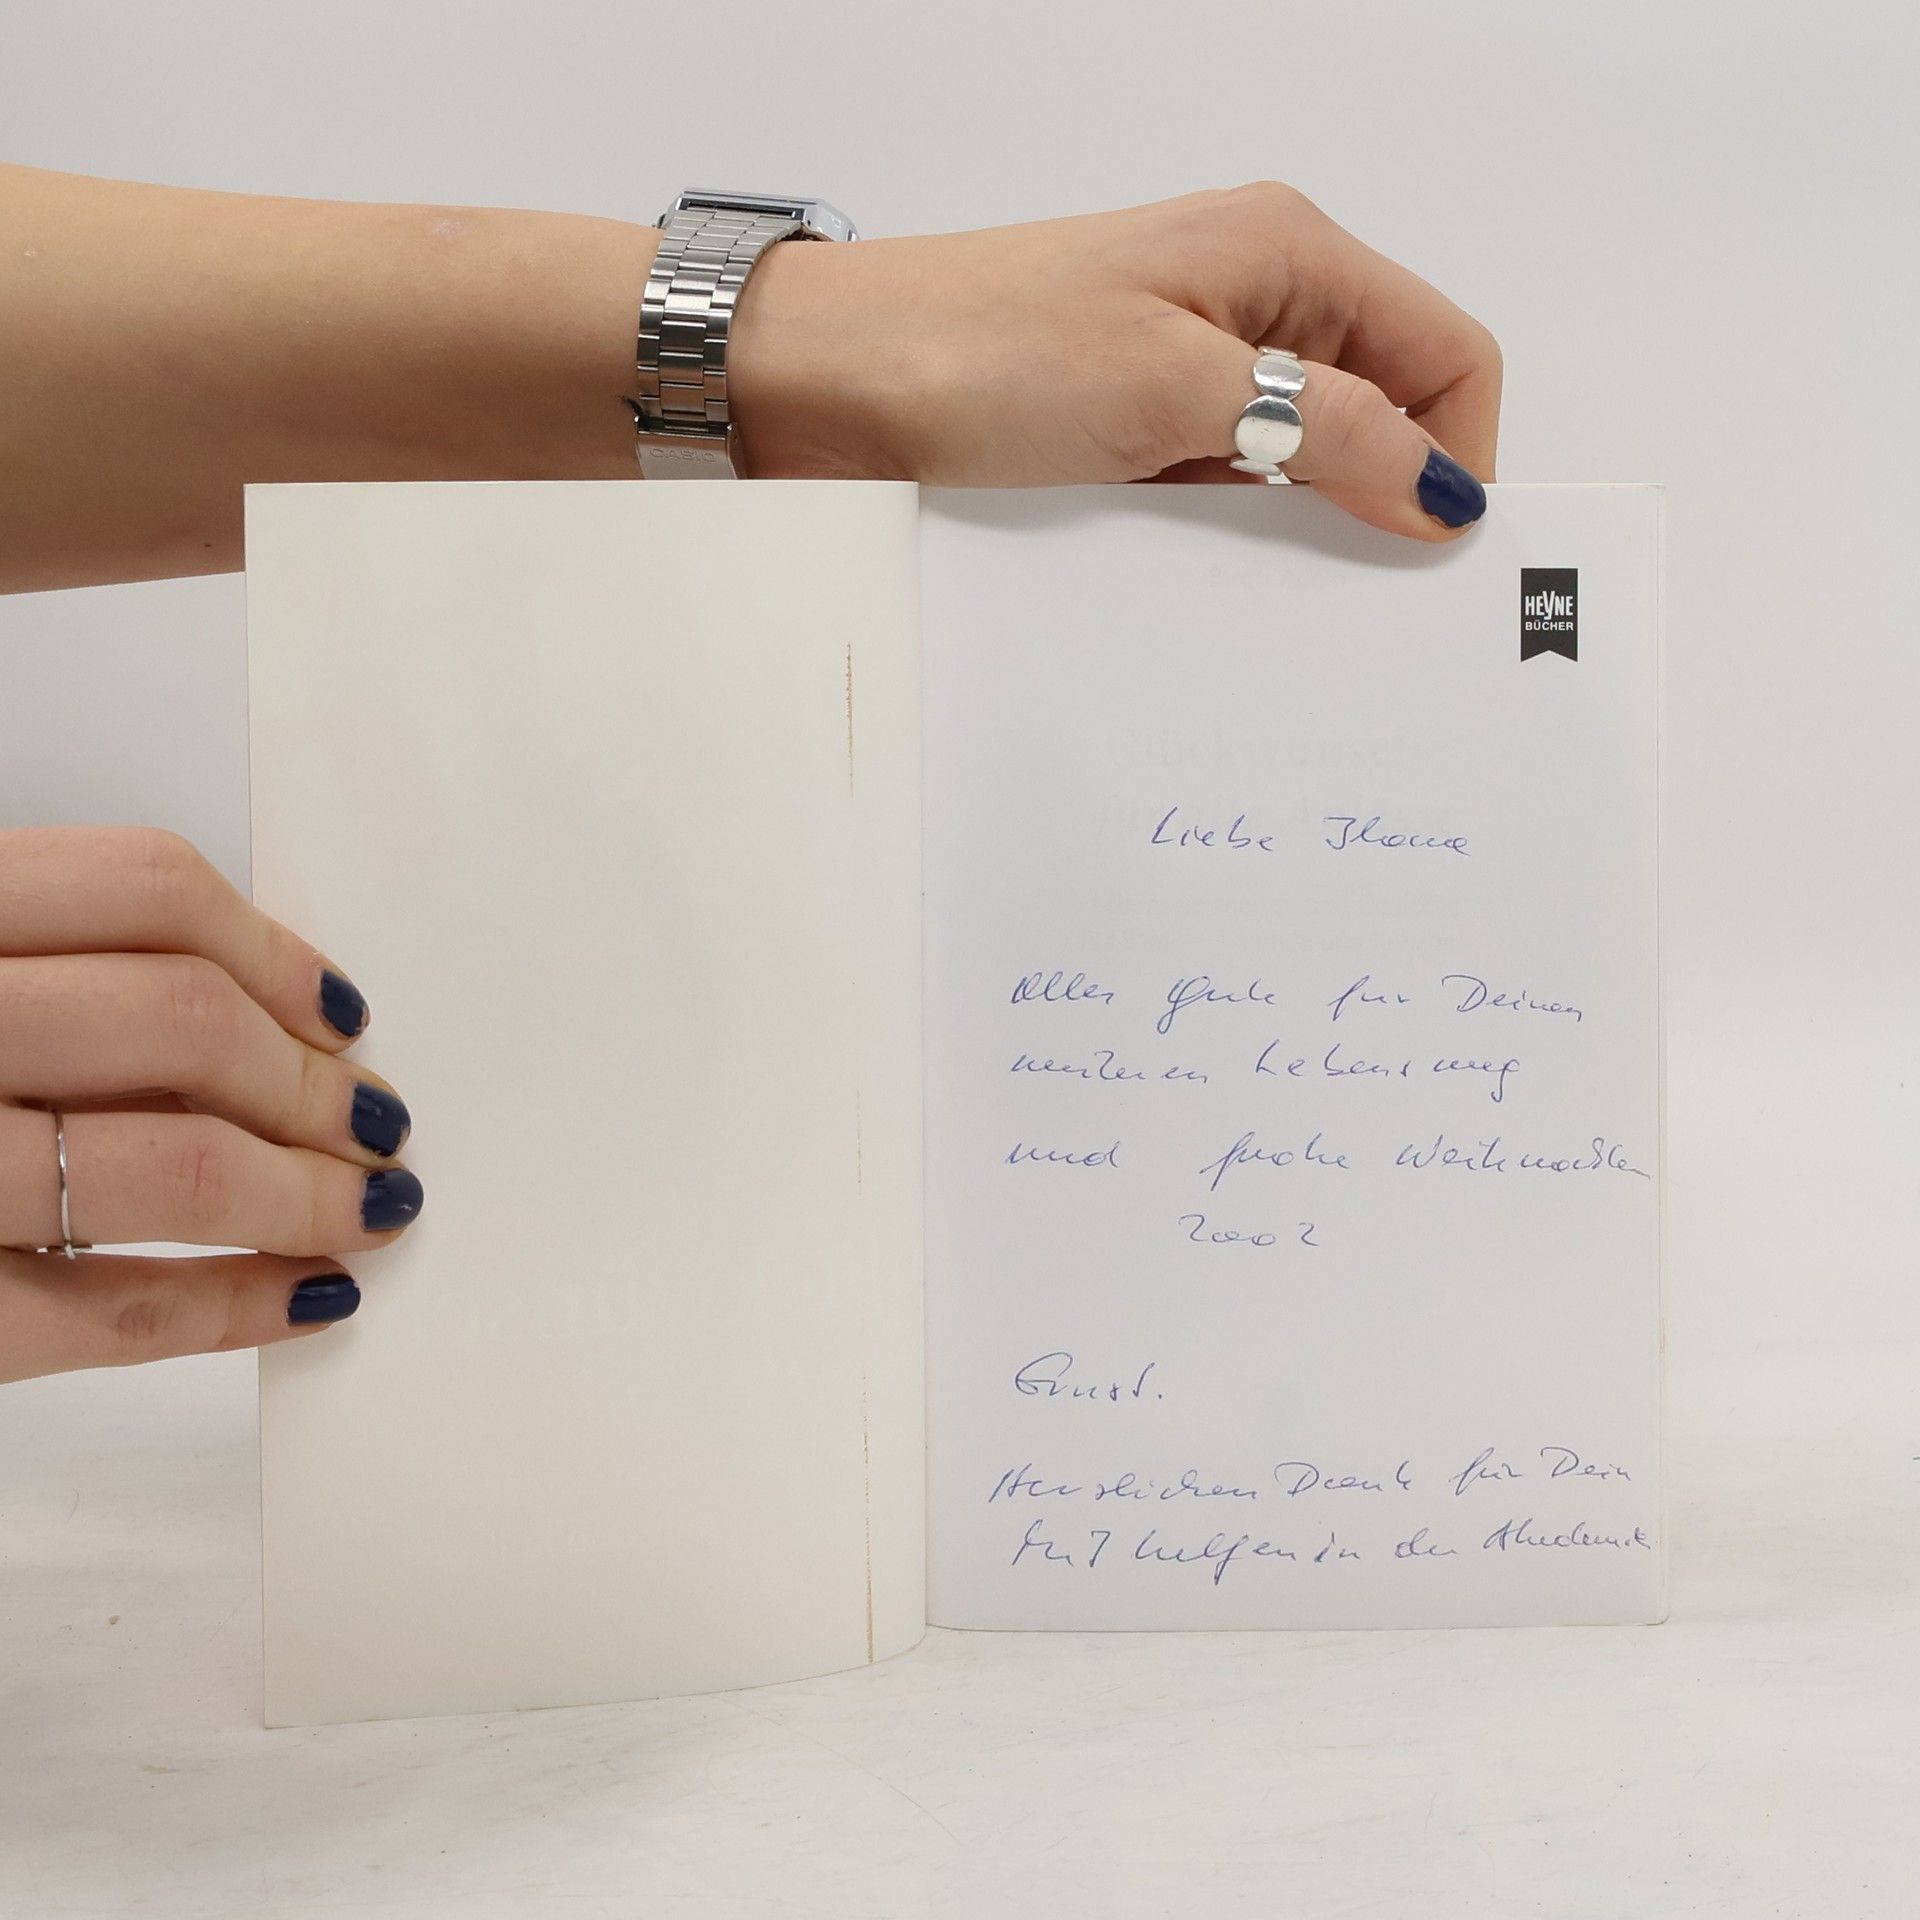 CASIO
HEYNE
BÜCHER
Glückwünsche
Liebe Ilona
Alles Gute für Deinen
weiteren Lebensweg
und frohe Weihnachten
2002
Ernst.
Herzlichen Dank für Dein
Mithelfen in der Akademie